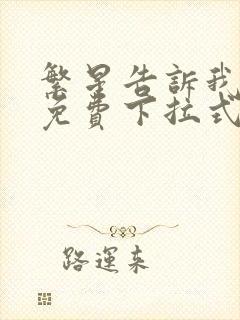 繁星告訴我
免費下拉式
路運来